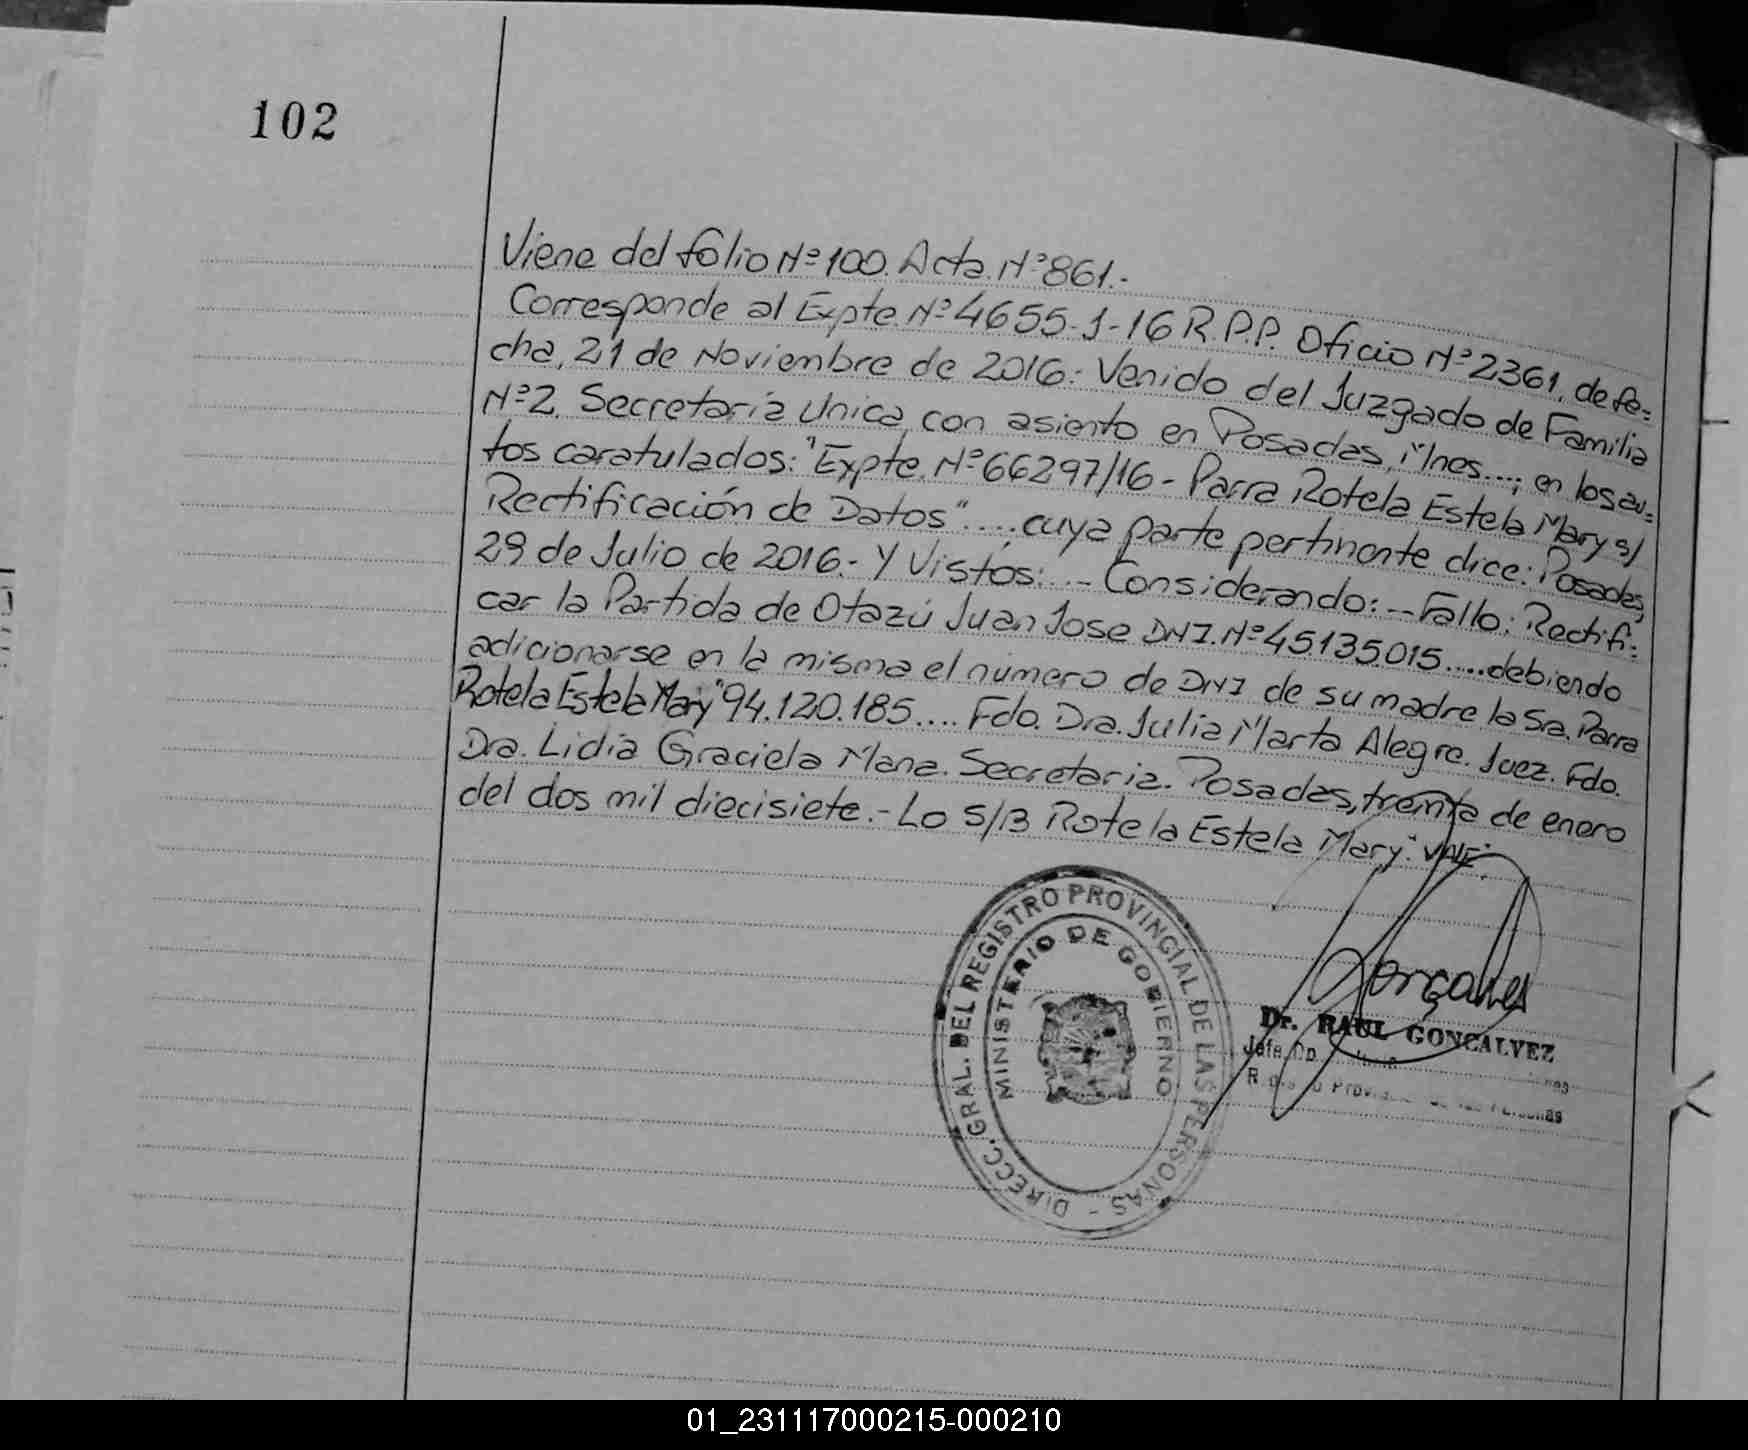 102
Viene del folio Nº100. Acta. Nº861.-
Corresponde al Expte. Nº4655-J-16 R.P.P. Oficio Nº2361, de fe=
cha, 21 de Noviembre de 2016: Venido del Juzgado de Familia
Nº2. Secretaría Unica, con asiento en Posadas, Mnes...; en los au=
tos caratulados: "Expte. Nº66297/16 - Parra Rotela Estela Mary s/
Rectificación de Datos".... cuya parte pertinente dice: Posadas,
29 de Julio de 2016.- Y Vistos:... Considerando:-- Fallo: Rectifi=
car la Partida de Otazú Juan Jose DNI. Nº45.135.015.... debiendo
adicionarse en la misma el número de DNI de su madre la Sra. Parra
Rotela Estela Mary "94.120.185.... Fdo. Dra. Julia Marta Alegre. Juez. Fdo.
Dra. Lidia Graciela Mana. Secretaria. Posadas, treinta de enero
del dos mil diecisiete.- Lo S/B Rotela Estela Mary". VALE".
DIRECC. GRAL. DEL REGISTRO PROVINCIAL DE LAS PERSONAS -
MINISTERIO DE GOBIERNO
Dr. RAUL GONCALVEZ
Jefe
01_231117000215-000210